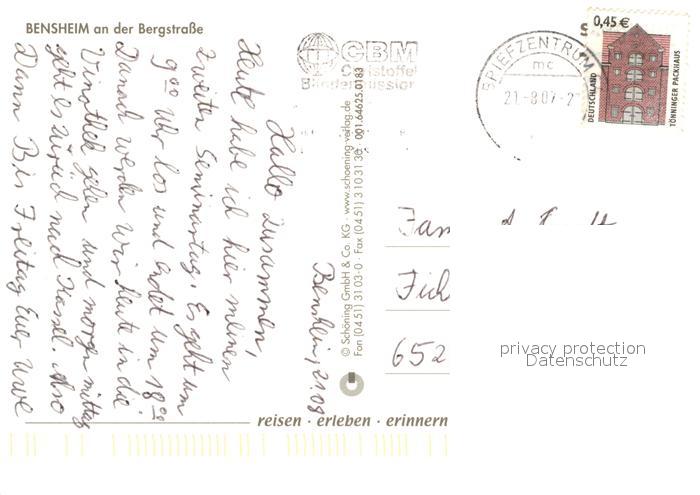 BENSHEIM an der Bergstraße
Bensheim, 21.08
Hallo zusammen,
Heute habe ich hier meinen
zweiten Seminartag. Es geht um
9⁰⁰ Uhr los und endet um 18⁰⁰
Danach werden wir heute in die
gehen und morgen mittag
geht es zurück nach Kassel. Also
Dann Bis Freitag Euer Uwe
© Schöning GmbH & Co. KG · www.schoening-verlag.de
Fon (0451) 3103-0 · Fax (0451) 3103130 · 001.64625.0183
CBM
Christoffel
Blindenmission
BRIEFZENTRUM
mc
21.-8.07-2
0,45 €
DEUTSCHLAND
TÖNNINGER PACKHAUS
Fam
Fich
652
privacy protection
Datenschutz
reisen · erleben · erinnern